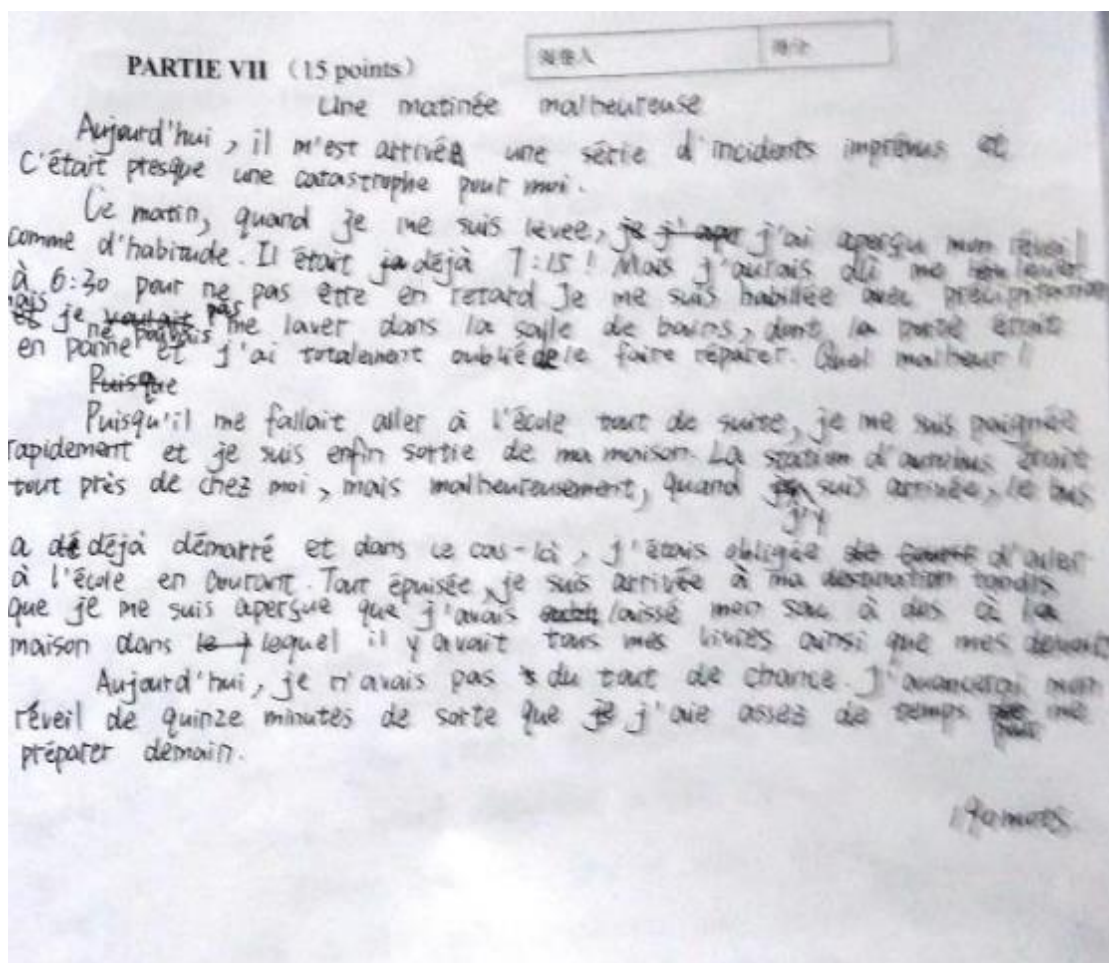 PARTIE VII （15 points）
阅卷人 得分
Une matinée malheureuse
Aujourd'hui, il m'est arrivé une série d'incidents imprévus et
c'était presque une catastrophe pour moi.
Ce matin, quand je me suis levée, j'ai aperçu mon réveil
comme d'habitude. Il était déjà 7:15 ! Mais j'aurais dû me lever
à 6:30 pour ne pas être en retard Je me suis habillée avec précipitation
mais je ne pouvais pas me laver dans la salle de bains, dont la porte était
en panne et j'ai totalement oublié de le faire réparer. Quel malheur !
Puisqu'il me fallait aller à l'école tout de suite, je me suis peignée
rapidement et je suis enfin sortie de ma maison. La station d'autobus était
tout près de chez moi, mais malheureusement, quand j'y suis arrivée, le bus
a déjà démarré et dans ce cas-là, j'étais obligée d'aller
à l'école en courant. Tout épuisée, je suis arrivée à ma destination tandis
que je me suis aperçue que j'avais laissé mon sac à dos à la
maison dans lequel il y avait tous mes livres ainsi que mes devoirs
Aujourd'hui, je n'avais pas du tout de chance. J'avancerai mon
réveil de quinze minutes de sorte que j'aie assez de temps me
préparer demain.